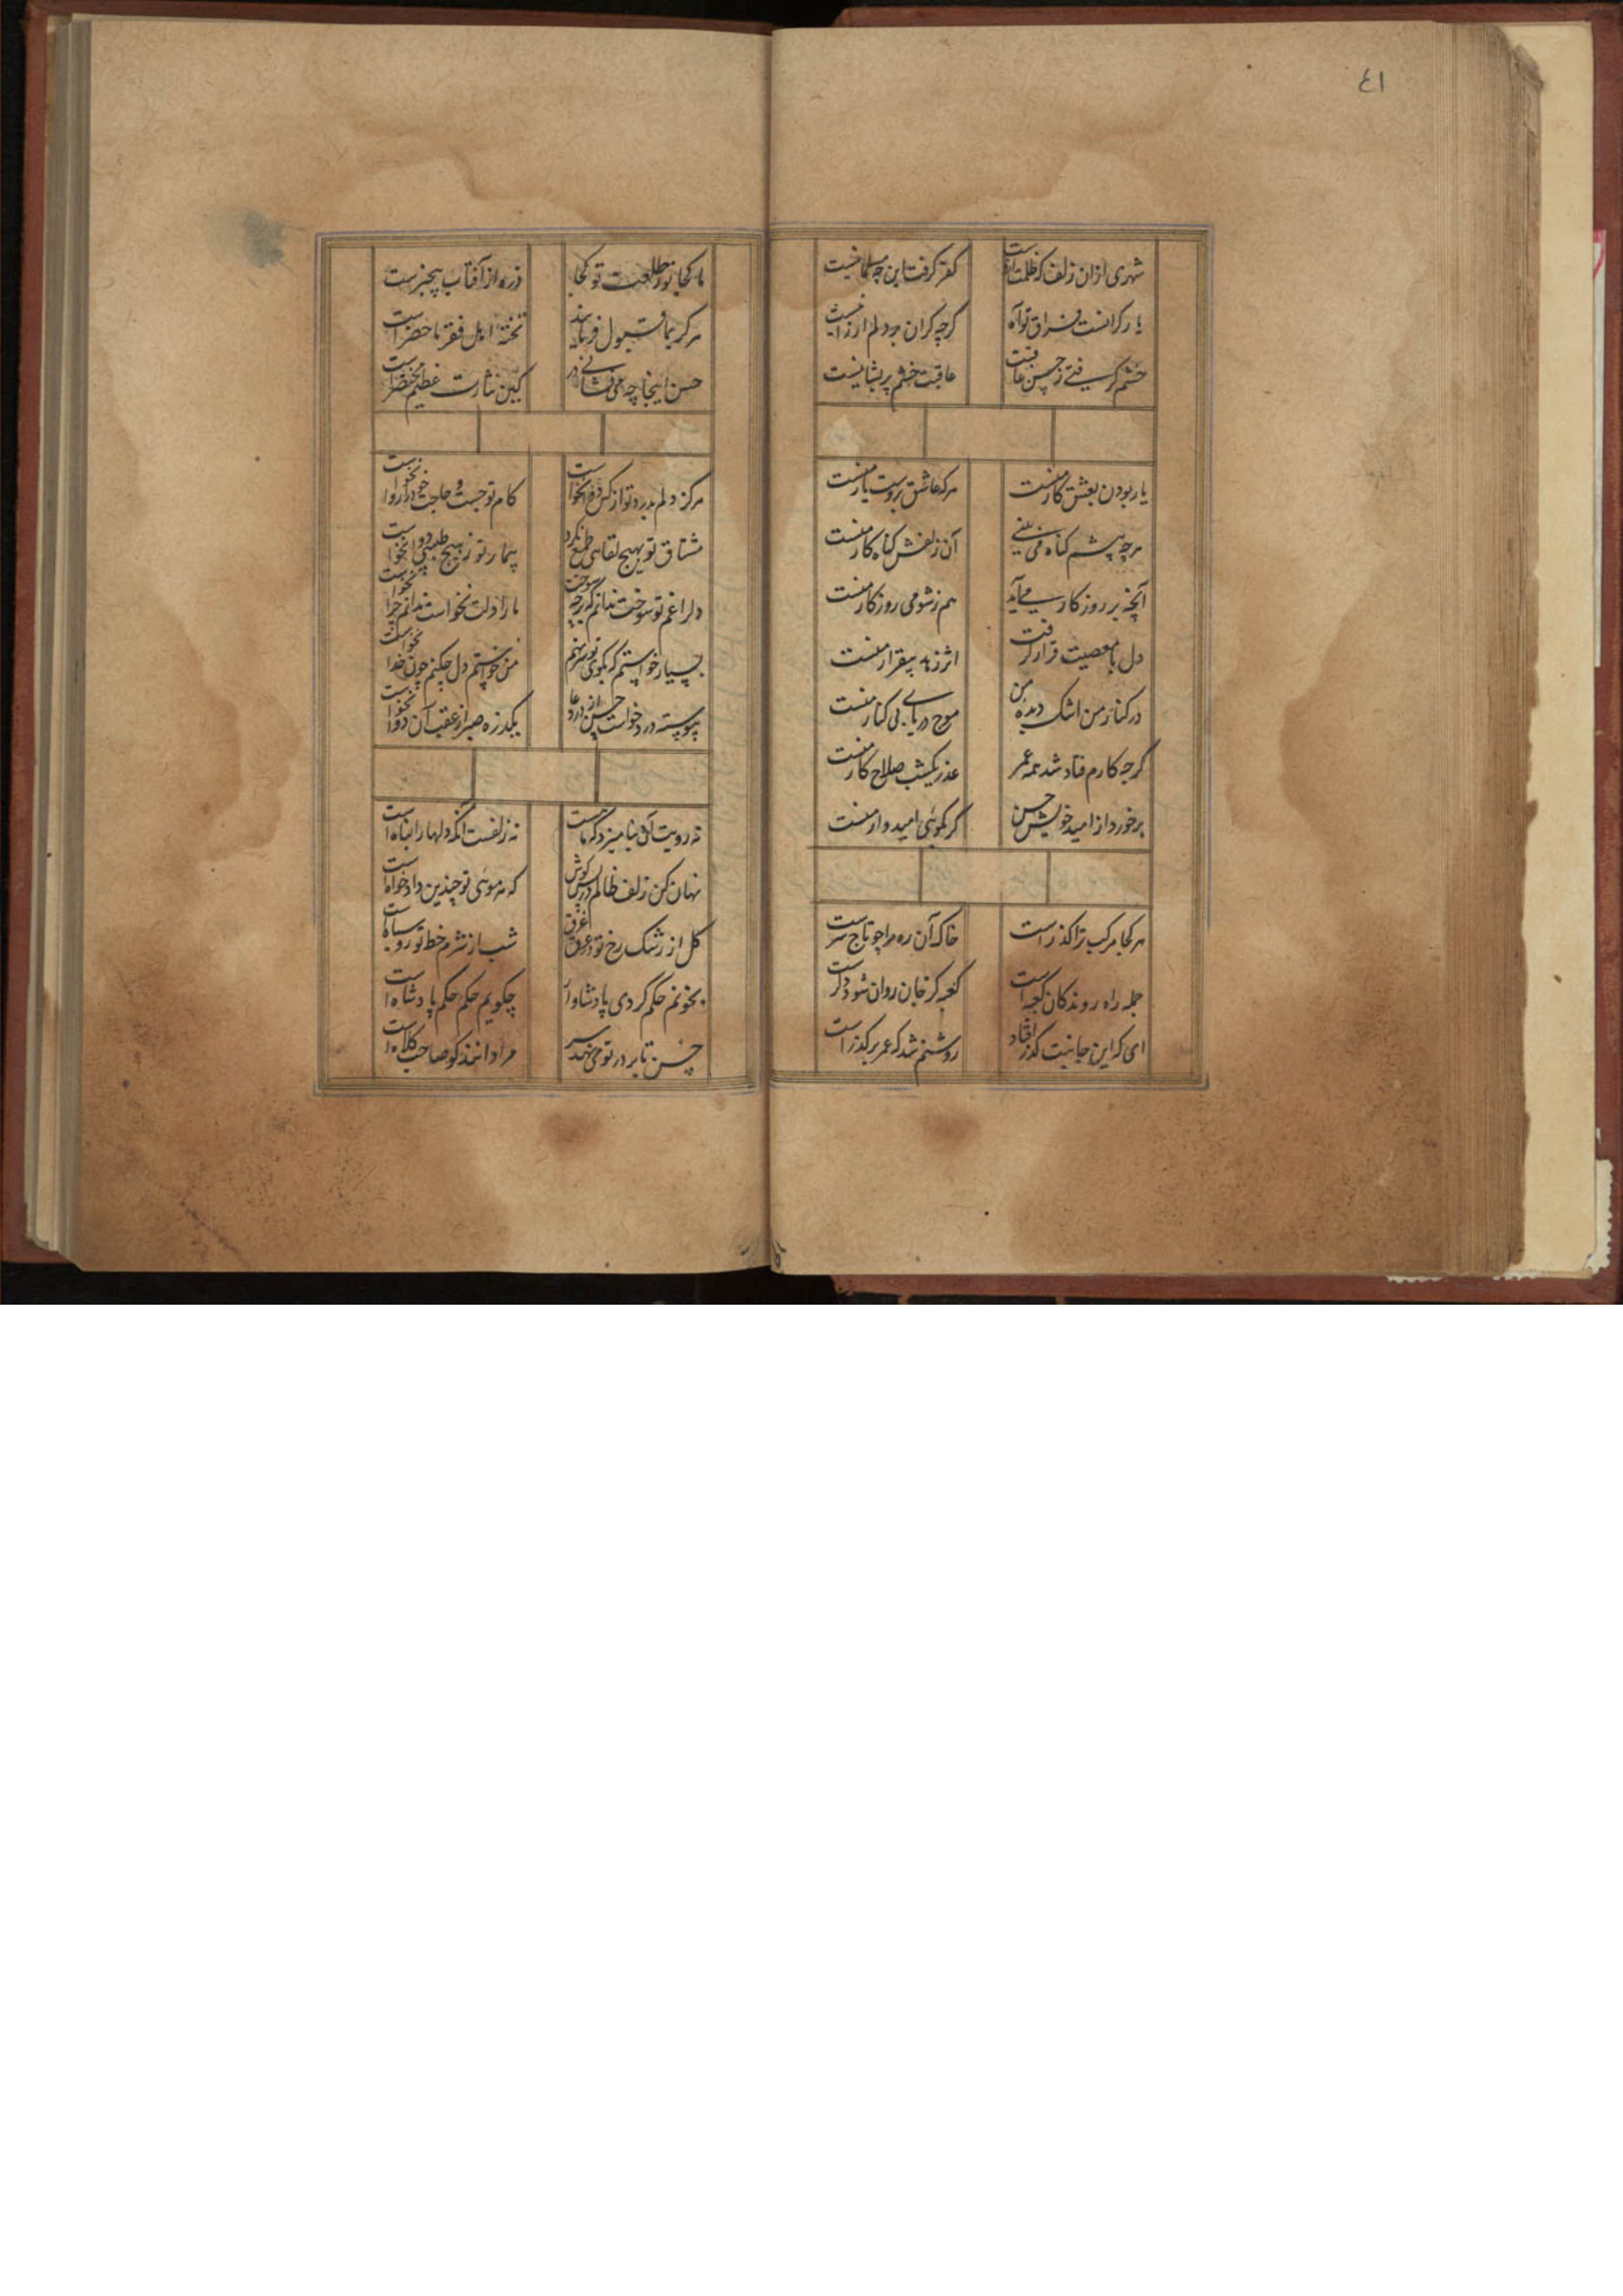 ٤١
شهری ازان زلف که ظلمت ازوست کفر گرفت این چه مسلمانیست
بار گرانست فراق تو آه گرچه گران بر دلم ارزانیست
خشم گرفتی ز حسن عاقبت عاقبت خشم پریشانیست
یار بودن بعشق کار منست هرکه عاشق بروست یار منست
هرچه پیشم گناه می بینی آن ز نفس گناه کار منست
آنچه بر روزگار می آید هم ز شومی روزگار منست
دل با معصیت قرار گرفت اثر زهد بیقرار منست
در کنار من اشک دیده من موج دریای بی کنار منست
گرچه کارم فساد شد همه عمر عذر یکشب صلاح کار منست
برخورد از امید خویش حسن گر بگوئی امیدوار منست
هر کجا مرکب ترا گذرست خاک آن ره مرا چو تاج سرست
جمله راه روندگان کعبه است کعبه گر جان روان شود دگرست
ای که این جانبت گذر افتاد روشنم شد که عمر بر گذرست
ما کجا تو و طلعت تو کجا ذره از آفتاب بیخبرست
هرکه بما قبول فرماید تحفه اهل فقر ما حضرست
حسن اینجا چه می فشانی در کین نثارت عظیم مختصرست
هرگز دلم بدرد تو از کس دوا نخواست کام تو جست و حاجت خود را روا نخواست
مشتاق تو بهیچ لقایی طمع نکرد بیمار تو ز هیچ طبیبی دوا نخواست
دل را غم تو سوخت ندانم که بر چه سوخت ما را دلت نخواست ندانم چرا نخواست
بسیار خواستم که بکوی تو سر نهم من خواستم دل چکنم چون خدا نخواست
پیوسته درد خواست حسن از در دعا یکذره صبر از عقب آن دوا نخواست
نه رویت آن نیامیزد که ماهست نه زلفست آنکه دلها را پناه است
نهان کن زلف ظالم در پس گوش که هر موئی تو چندین دادخواه است
گل از رشک رخ تو در عرق غرق شب از شرم خط تو رو سیاه است
بخونم حکم کردی پادشاوار چگویم حکم حکم پادشاه است
حسن تا بر در تو می نهد سر مرا دانند کو صاحب کلاه است